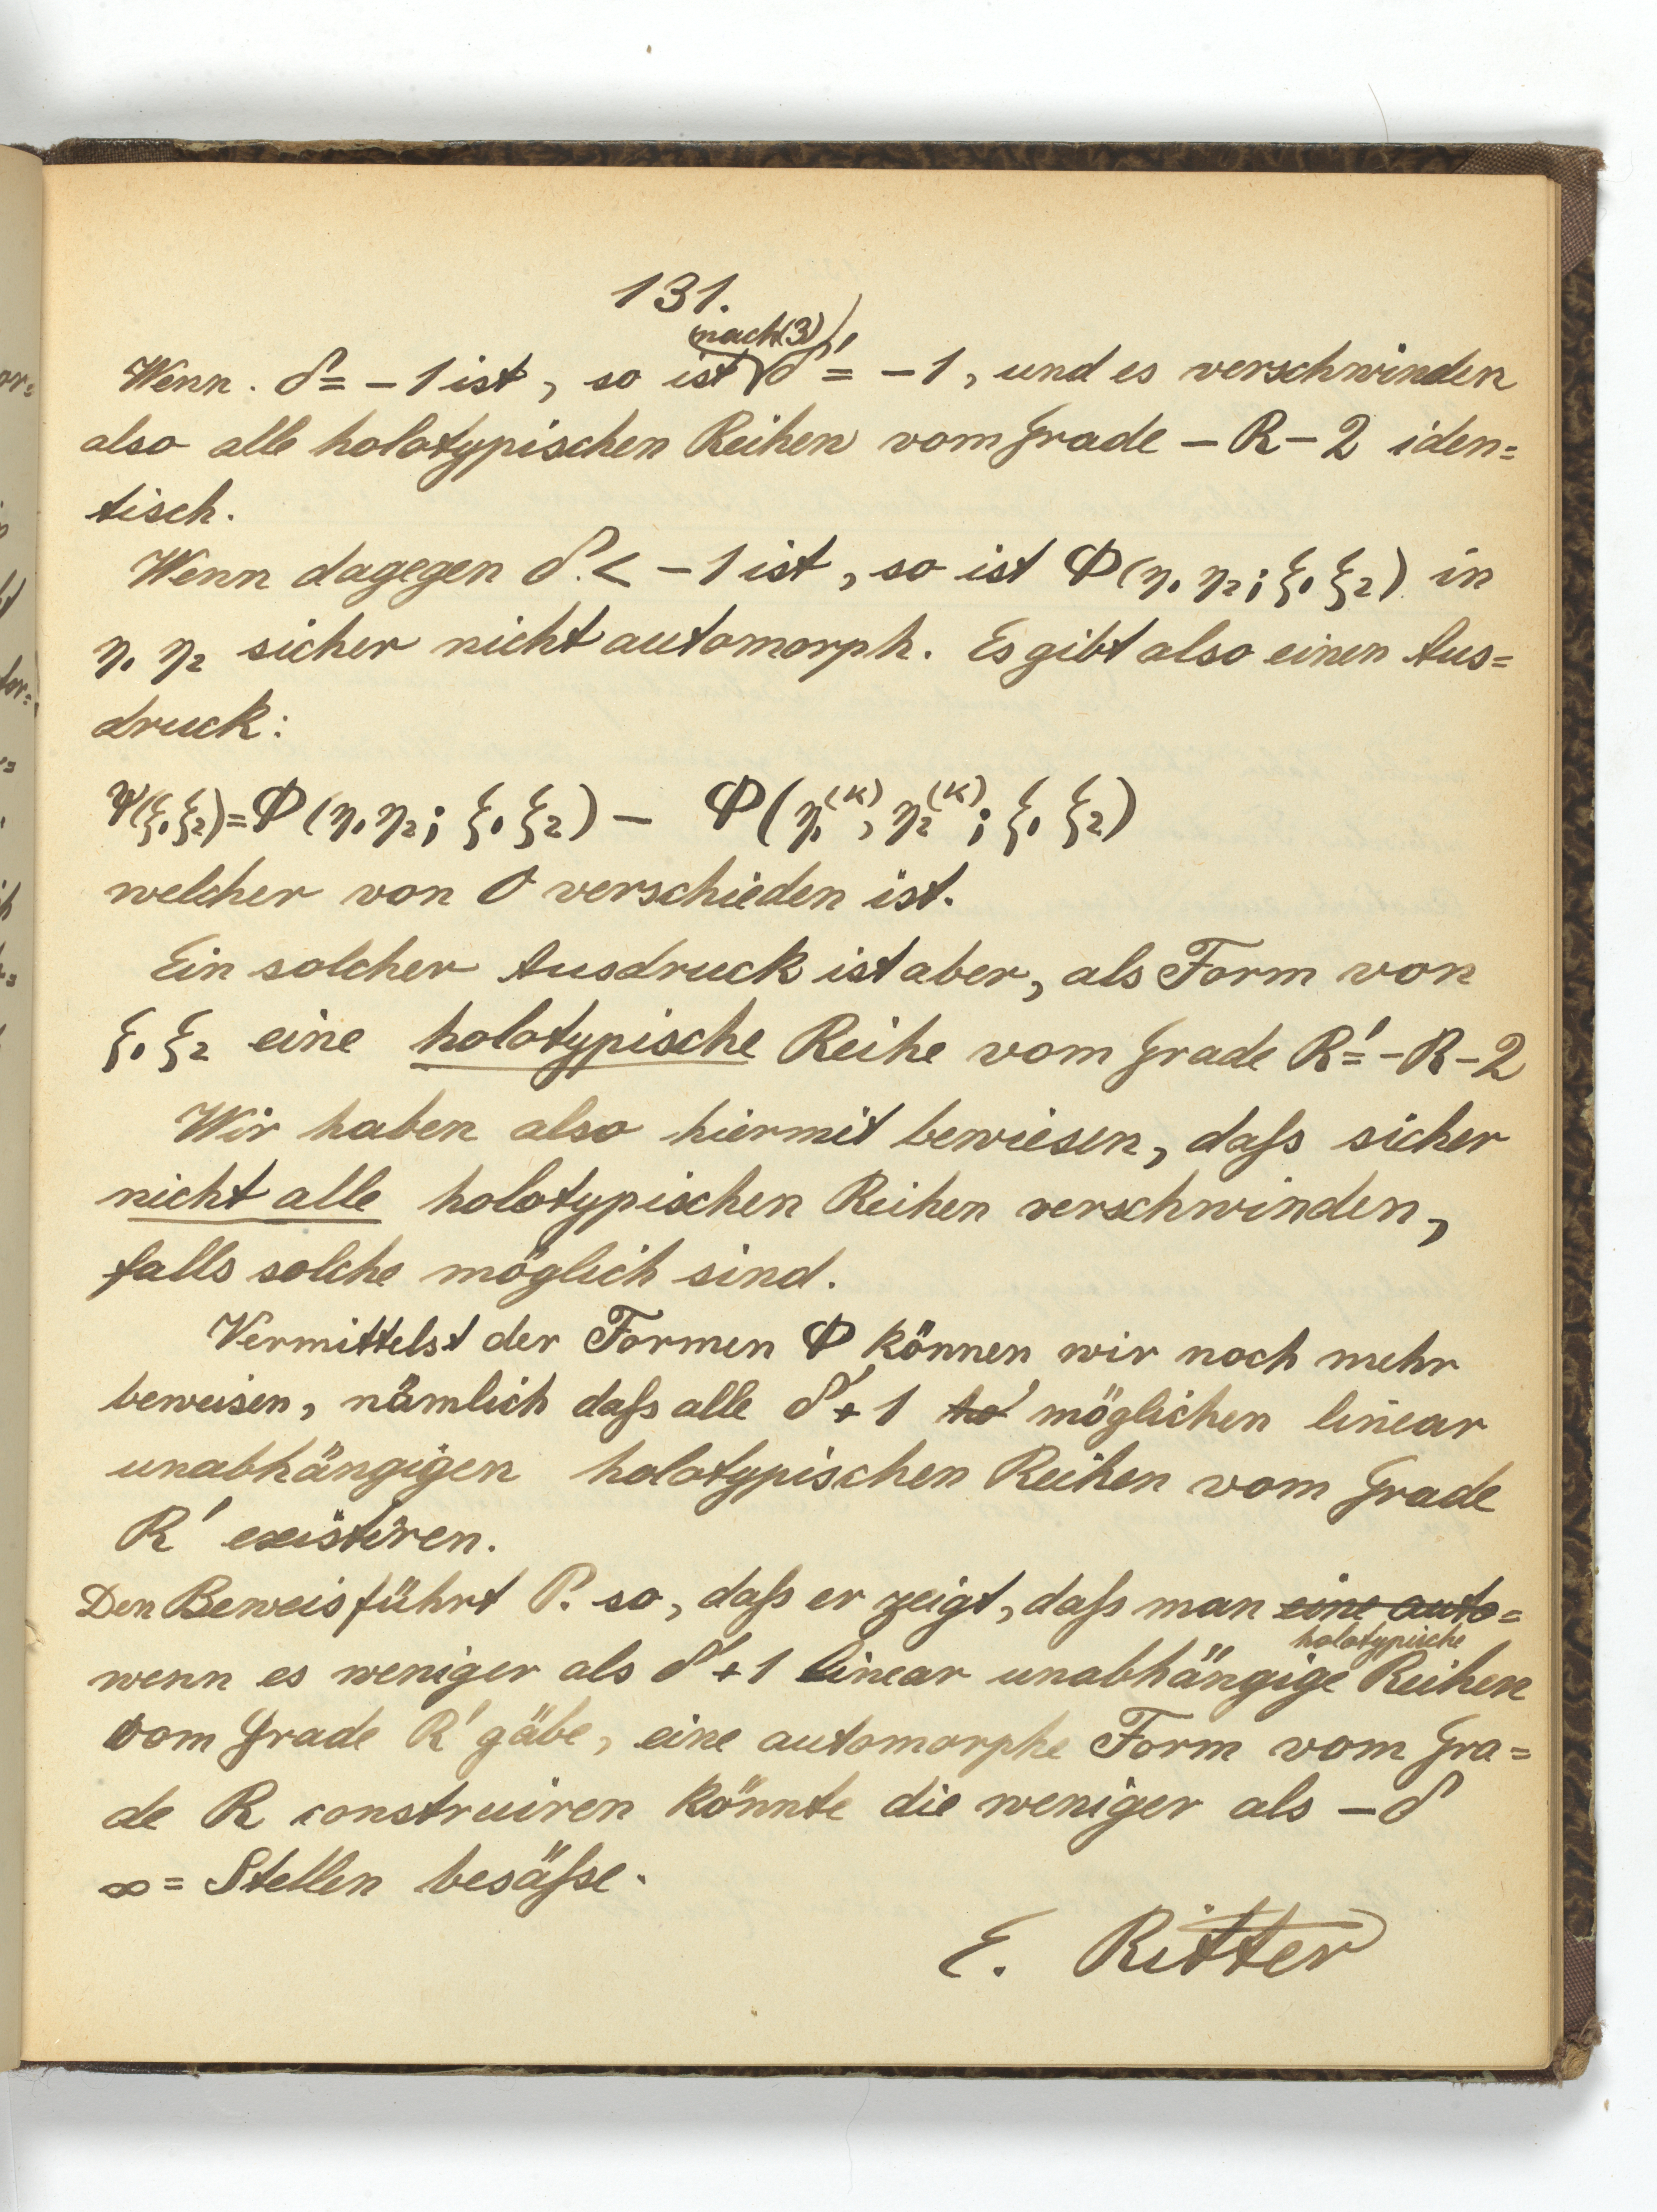 131.
(nach (3))
Wenn δ = – 1 ist, so ist δ' = – 1, und es verschwinden
also alle holotypischen Reihen vom Grade – R – 2 iden=
tisch.
Wenn dagegen δ < – 1 ist, so ist Φ(η₁ η₂; ξ₁ ξ₂) in
η₁ η₂ sicher nicht automorph. Es gibt also einen Aus=
druck:
Ψ(ξ₁ ξ₂) = Φ(η₁ η₂; ξ₁ ξ₂) – Φ(η₁⁽ᵏ⁾, η₂⁽ᵏ⁾; ξ₁ ξ₂)
welcher von 0 verschieden ist.
Ein solcher Ausdruck ist aber, als Form von
ξ₁ ξ₂ eine holotypische Reihe vom Grade R' = – R – 2
Wir haben also hiermit bewiesen, daſs sicher
nicht alle holotypischen Reihen verschwinden,
falls solche möglich sind.
Vermittelst der Formen Φ können wir noch mehr
beweisen, nämlich daſs alle δ' + 1 ho möglichen linear
unabhängigen holotypischen Reihen vom Grade
R' existiren.
Den Beweis führt P. so, daſs er zeigt, daſs man eine auto=
holotypische
wenn es weniger als δ' + 1 linear unabhängige Reihen
vom Grade R' gäbe, eine automorphe Form vom Gra=
de R construiren könnte die weniger als – δ
∞ = Stellen besäſse.
E. Ritter